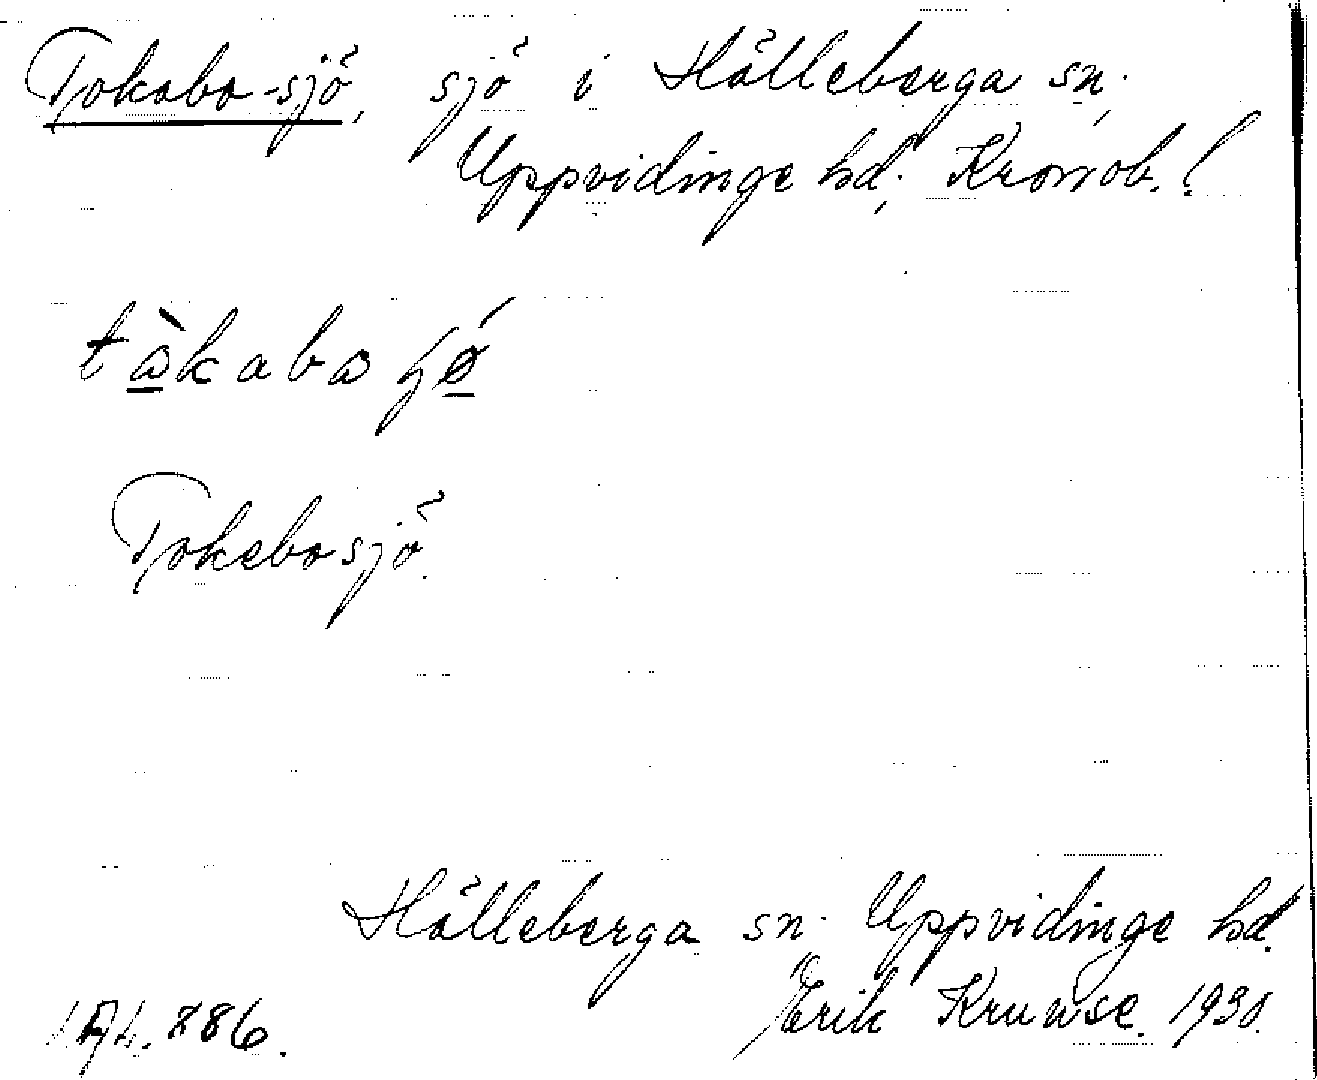 Tokabo-sjö, sjö i Hälleberga sn.,
Uppvidinge hd., Kronob. l
tàkabo sjö́
Tokebosjö.
Hälleberga sn. Uppvidinge hd.
Erik Kruuse. 1930.
786.